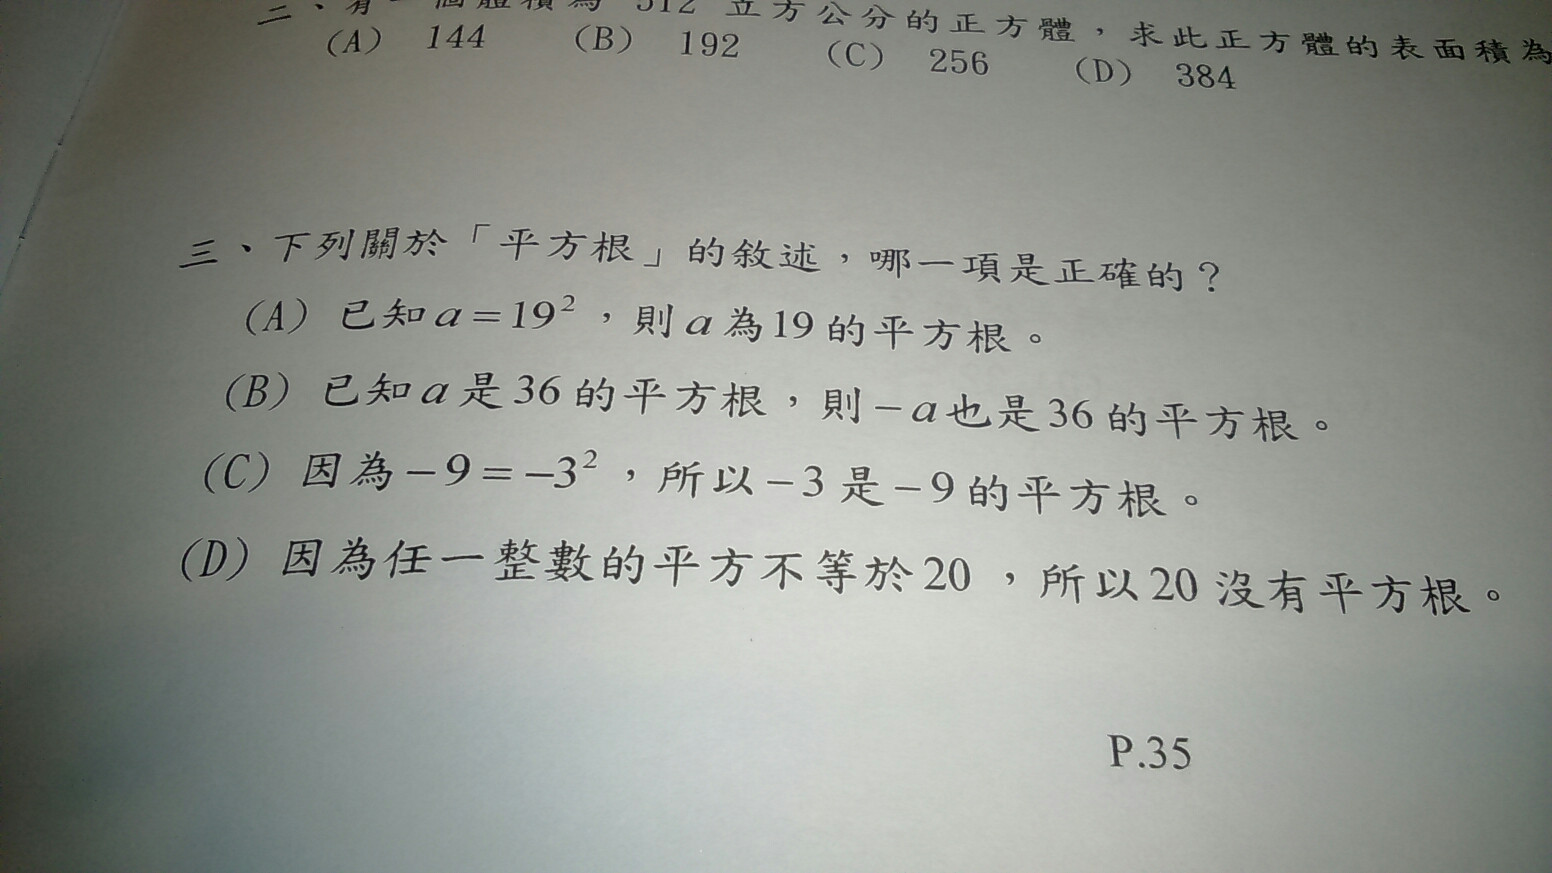 二、有一個體積為 512 立方公分的正方體，求此正方體的表面積為
(A) 144 (B) 192 (C) 256 (D) 384
三、下列關於「平方根」的敘述，哪一項是正確的？
(A) 已知a=19²，則a為19的平方根。
(B) 已知a是36的平方根，則-a也是36的平方根。
(C) 因為-9=-3²，所以-3是-9的平方根。
(D) 因為任一整數的平方不等於20，所以20沒有平方根。
P.35